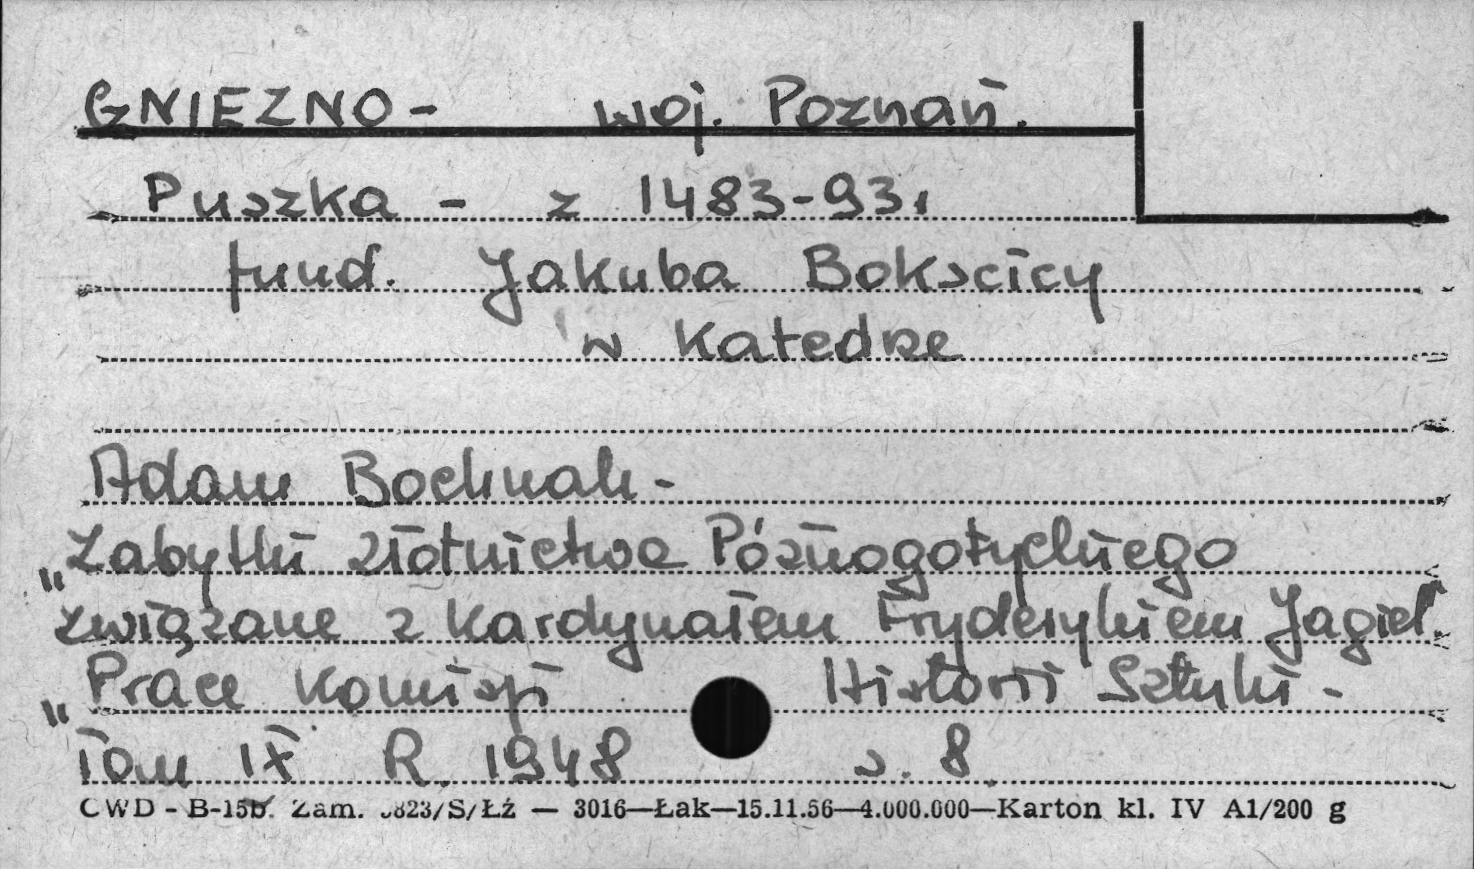 GNIEZNO - woj. Poznań.
Puszka - z 1483-93.
fund. Jakuba Bokscicy
w Katedrze
Adam Bochnak -
„Zabytki złotnictwa Późnogotyckiego
związane z Kardynałem Fryderykiem Jagieł.
„Prace Komisji Historii Sztuki -
Tom IX R. 1948 s. 8
CWD - B-15b. Zam. 3823/S/Łź — 3016—Łak—15.11.56—4.000.000—Karton kl. IV A1/200 g